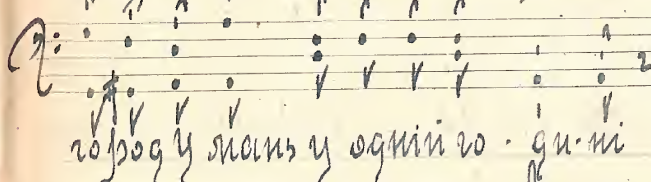 город Умань у одній го - ди - ні